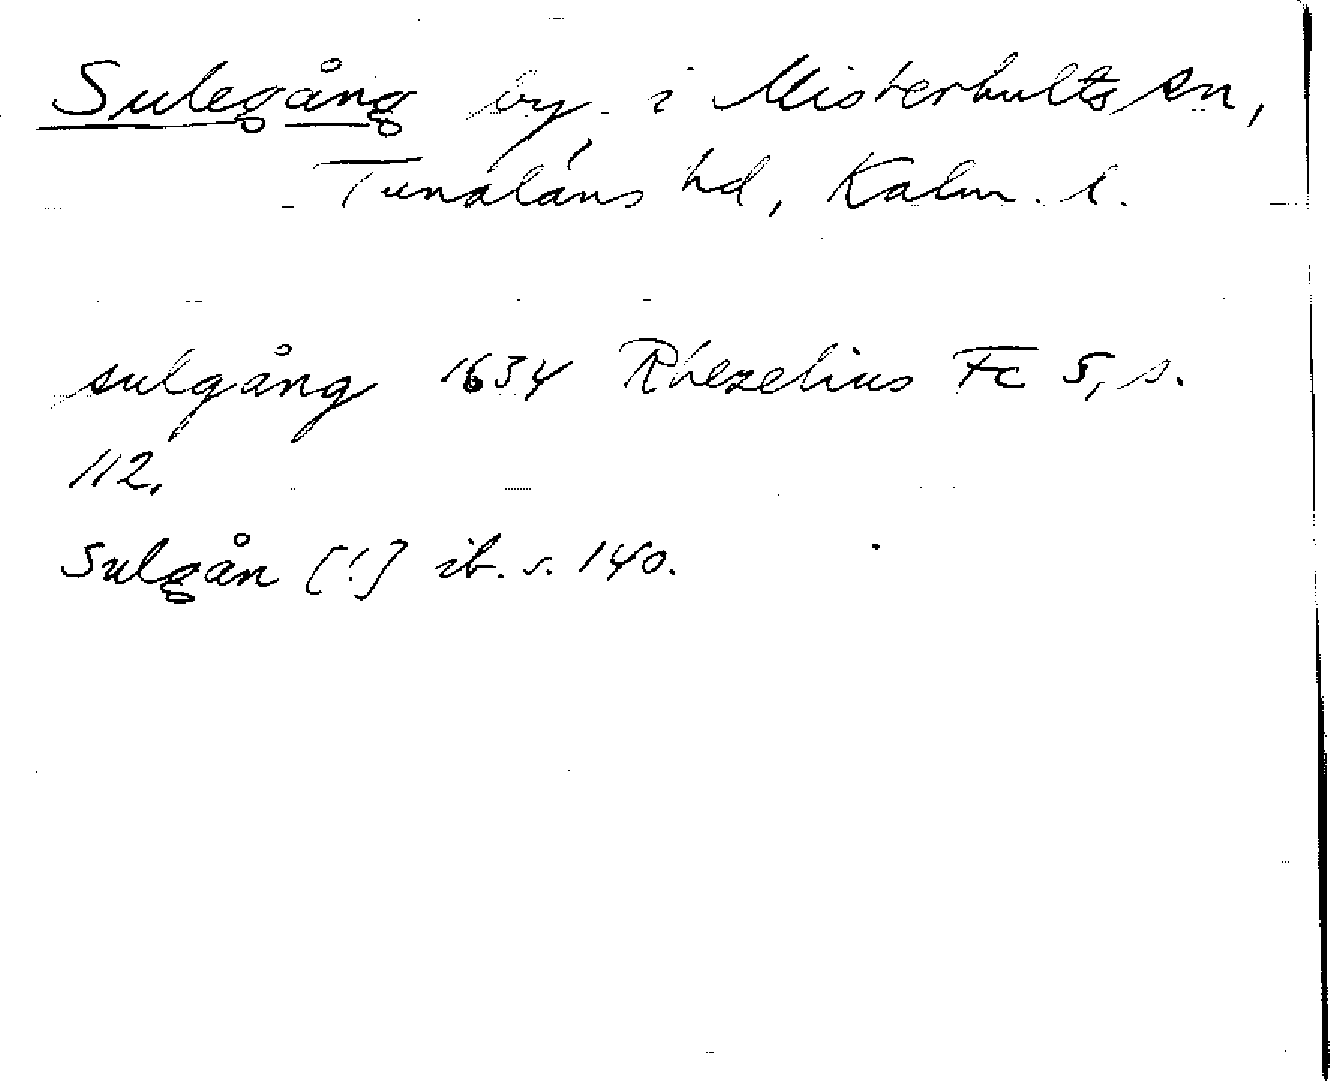 Sulegång by i Misterhults sn,
Tunaläns hd, Kalm. l.
sulgång 1634 Rhezelius Fc 5, s.
112.
Sulgån [!] ib. s. 140.